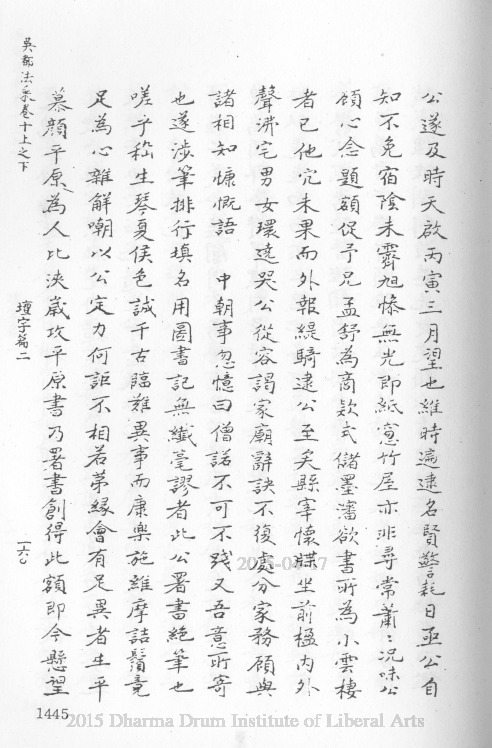 公遂及時天啟丙寅三月望也維時逓逮名賢警耗日亟公自
知不免宿陰未霽旭慘無光即紙窓竹屋亦非尋常蕭〻況味公
傾心念題額促予兄孟舒為商欵式儲墨瀋欲書所為小雲棲
者已他宂未果而外報緹騎逮公至矣縣宰懷牒坐前楹內外
聲沸宅男女環遶哭公從容謁家廟辭訣不復處分家務顧與
諸相知慷慨語　中朝事忽憶曰僧諾不可不踐又吾意所寄
也遂涉筆排行填名用圖書記無纖毫謬者此公署書絶筆也
嗟乎嵇生琴夏侯色誠千古臨難異事而康樂施維摩詰鬚竟
足為心雜解嘲以公定力何詎不相若苐緣會有足異者生平
慕顏平原為人比浹歲攻平原書乃署書創得此額即今懸望
吳都法乘卷十上之下
壇宇篇二
一六〇
1445
2015-04-17
2015 Dharma Drum Institute of Liberal Arts